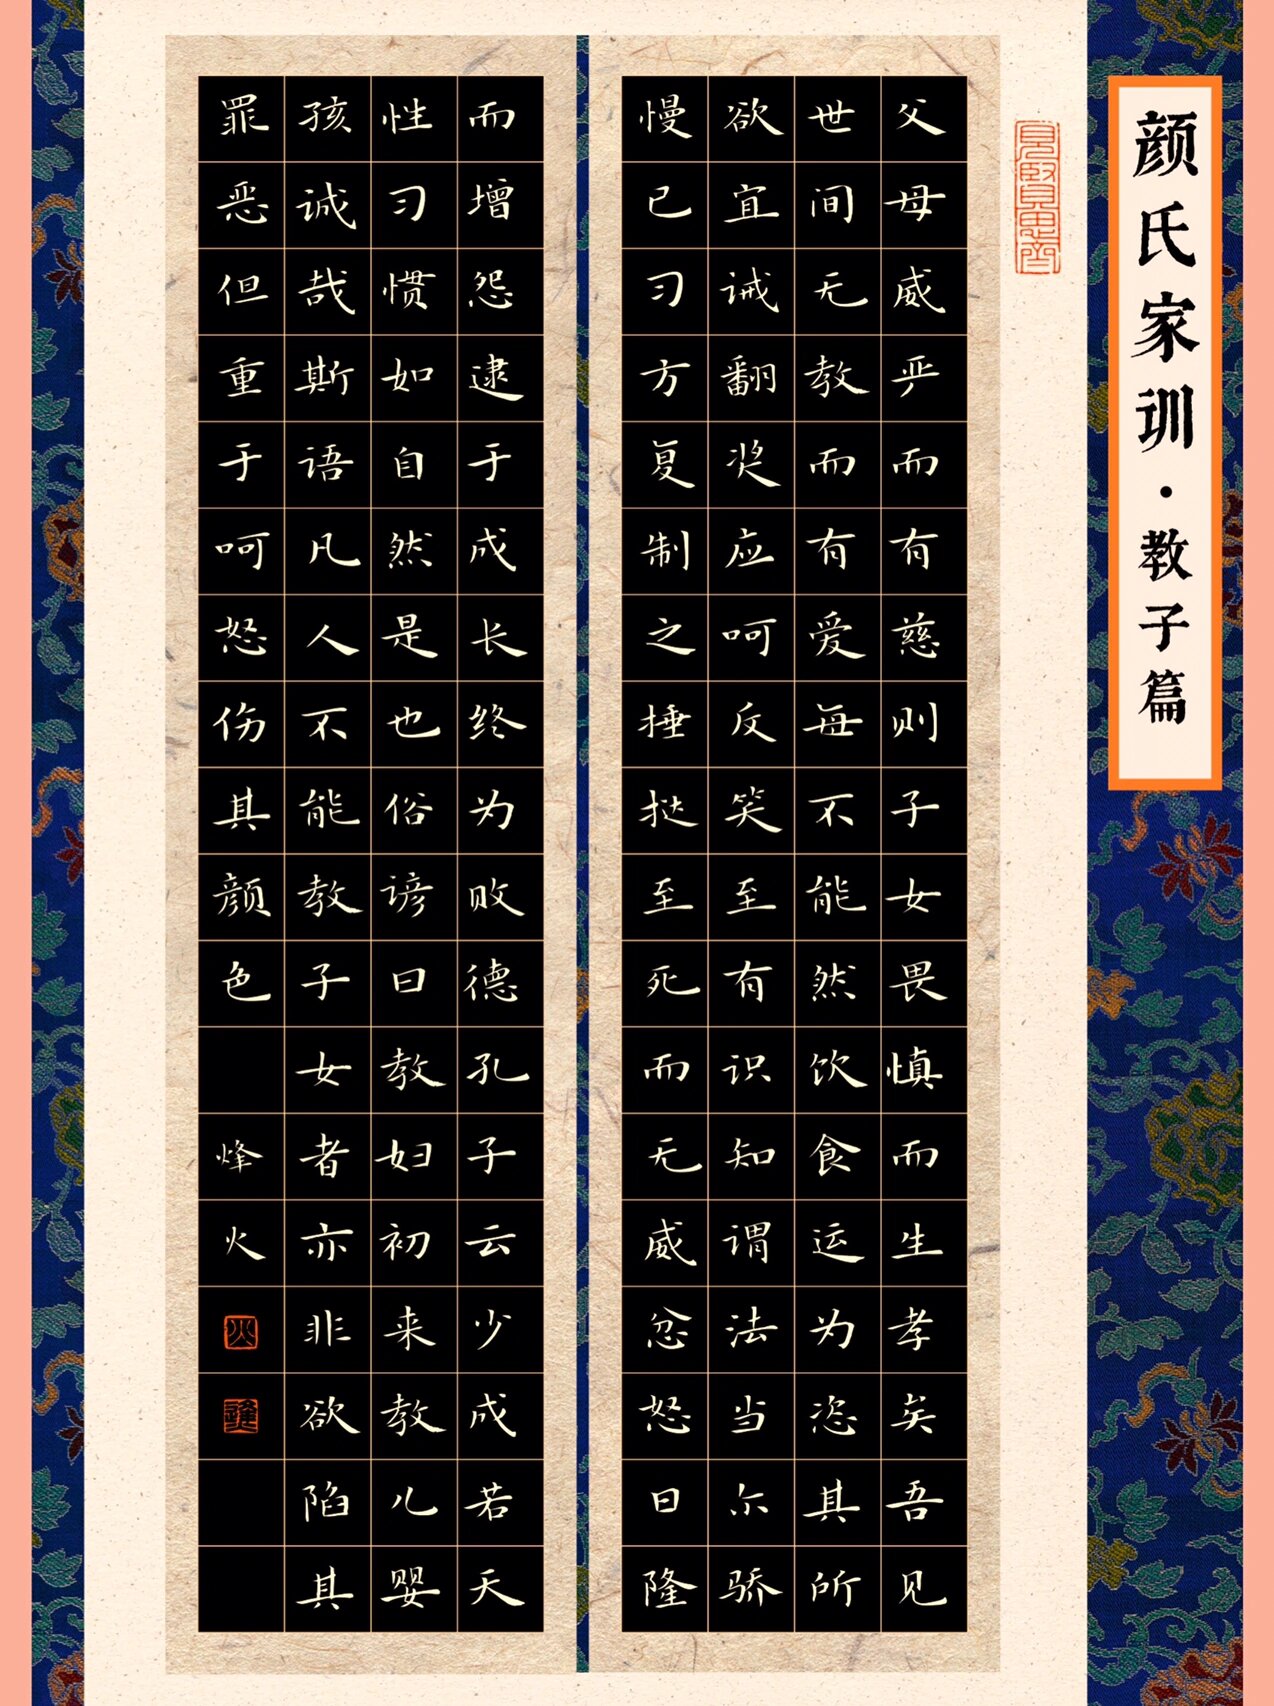 颜氏家训·教子篇
見賢思齊
父母威严而有慈则子女畏慎而生孝矣吾见
世间无教而有爱每不能然饮食运为恣其所
欲宜诫翻奖应呵反笑至有识知谓法当尔骄
慢已习方复制之捶挞至死而无威忿怒日隆
而增怨逮于成长终为败德孔子云少成若天
性习惯如自然是也俗谚曰教妇初来教儿婴
孩诚哉斯语凡人不能教子女者亦非欲陷其
罪恶但重于呵怒伤其颜色
烽火
火
逢